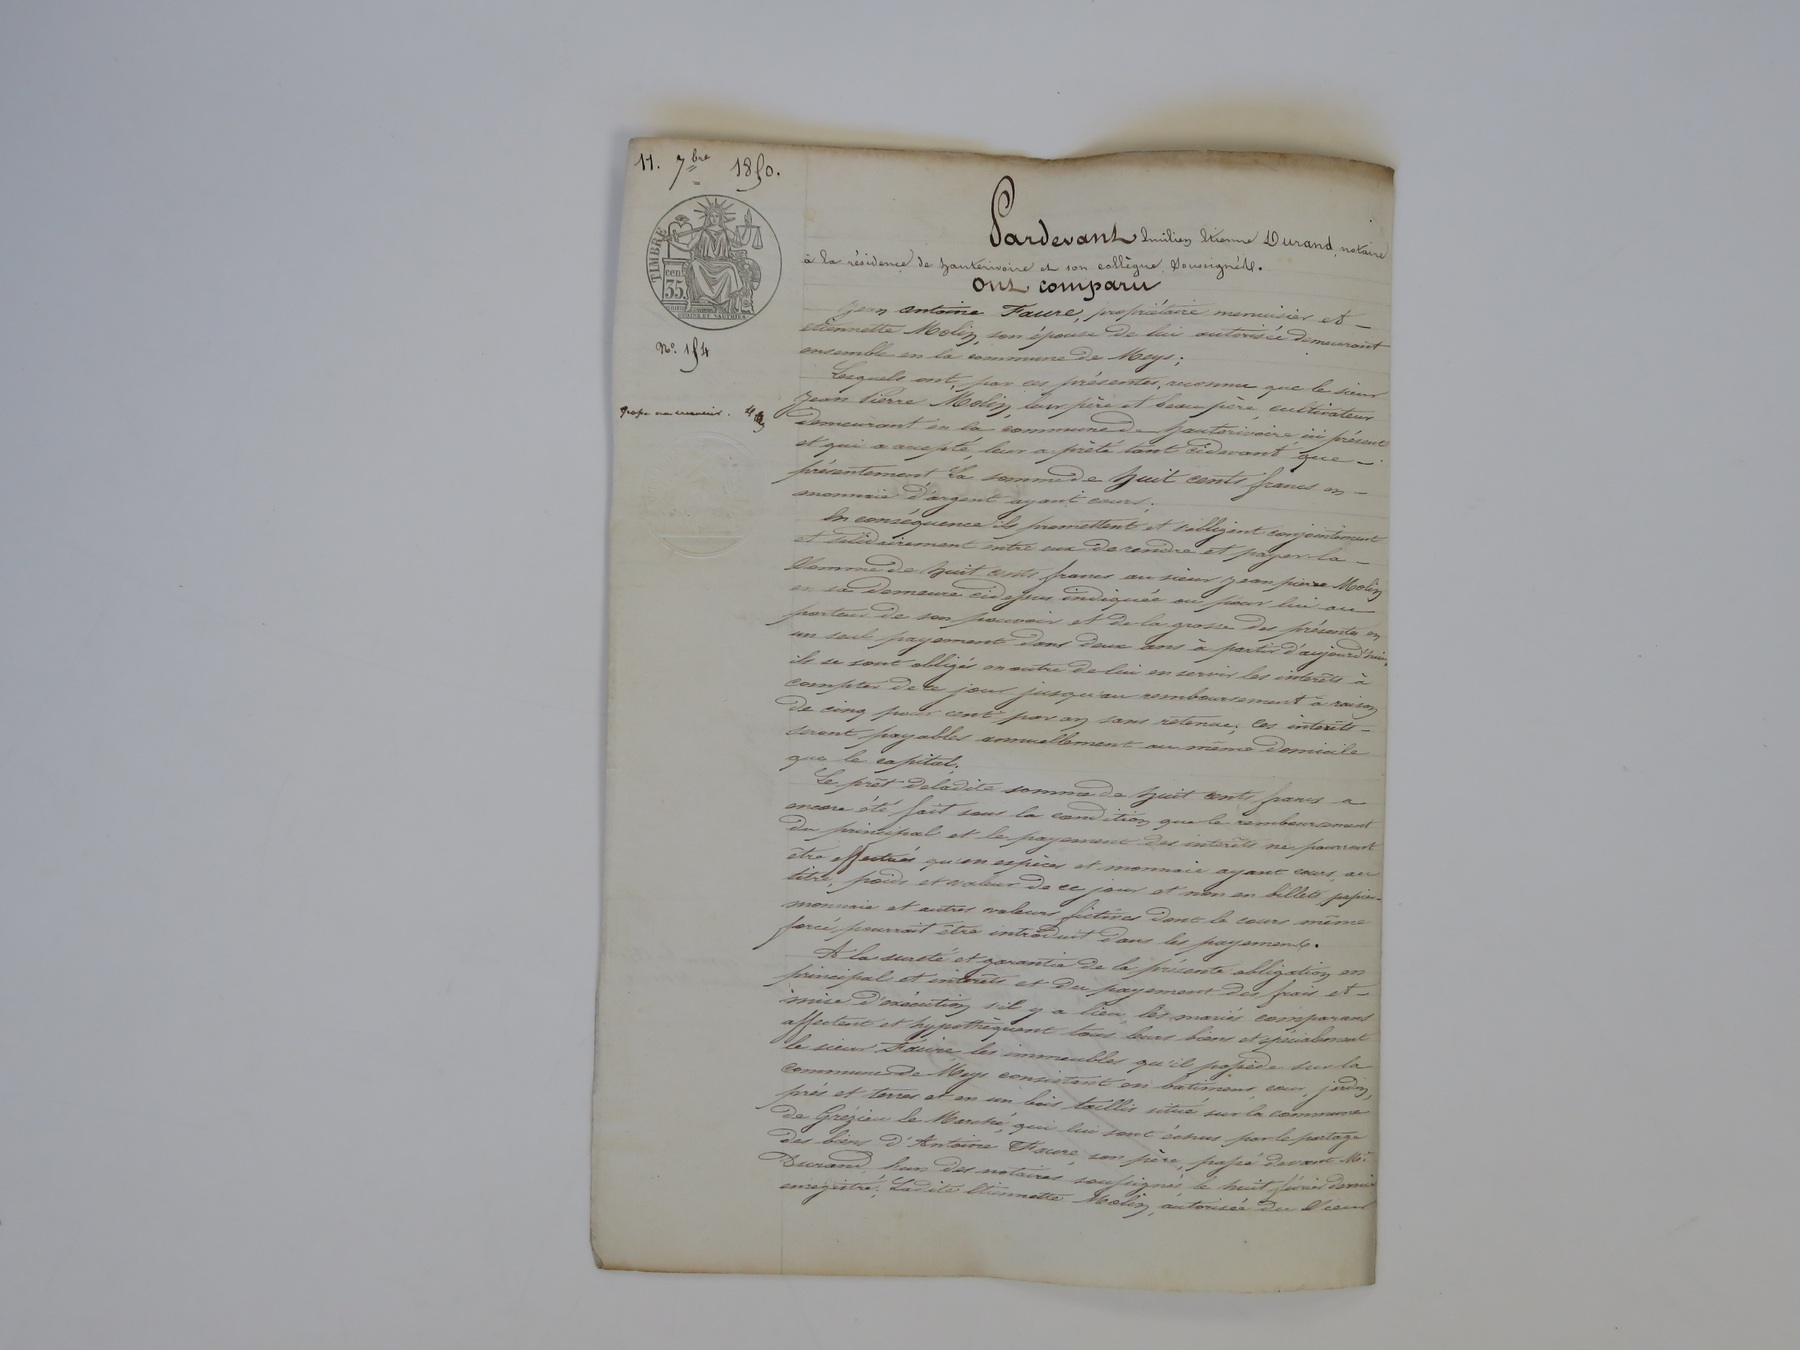 11. 7bre 1850.
TIMBRE
cen.
35
No. 154
Pardevant Etienne Durand, notaire
à la résidence de hauterivoire et son collègue soussignés.
Ont comparu
Jean antoine Faure, propriétaire menuisier et
etiennette Molin, son épouse de lui autorisée demeurant
ensemble en la commune de Meys;
Lesquels ont, par ces présentes, reconnu que le sieur
Jean Pierre Molin, leur père et beau père, cultivateur
demeurant en la commune de hauterivoire ici présent
et qui a accepté, leur a prêté tant cidevant que
présentement la somme de huit cents francs en
monnaie d'argent ayant cours.
En conséquence ils promettent et s'obligent conjointement
et solidairement entre eux de rendre et payer la
somme de huit cents francs au sieur jean pierre Molin
en sa demeure cidessus indiquée ou pour lui au
porteur de son pouvoir et de la grosse des présentes en
un seul payement dans deux ans à partir d'aujourd'hui,
ils se sont obligés en outre de lui en servir les intérêts à
compter de ce jour jusqu'au remboursement à raison
de cinq pour cent par an sans retenue; ces intérêts
seront payables annuellement au même domicile
que le capital.
Le prêt deladite somme de huit cents francs a
encore été fait sous la condition que le remboursement
du principal et le payement des intérêts ne pourront
être effectués qu'en espèces et monnaie ayant cours, au
titre, poids et valeur de ce jour et non en billets, papier-
monnaie et autres valeurs fictives dont le cours même
forcé, pourrait être introduit dans les payements.
A la sureté et garantie de la présente obligation en
principal et intérêts et du payement des frais et
mise d'exécution s'il y a lieu, les mariés comparans
affectent et hypothèquent tous leurs biens et spécialement
le sieur Faure, les immeubles qu'il possède sur la
commune de Meys consistant en batimens, cour, jardin,
prés et terres et en un bois taillis situé sur la commune
de Grézieu le Marché, qui lui sont échus par le partage
des biens d'Antoine Faure, son père, passé devant Me.
Durand, l'un des notaires soussignés le huit février dernier
enregistré. Ladite Etiennette Molin, autorisée du sieur